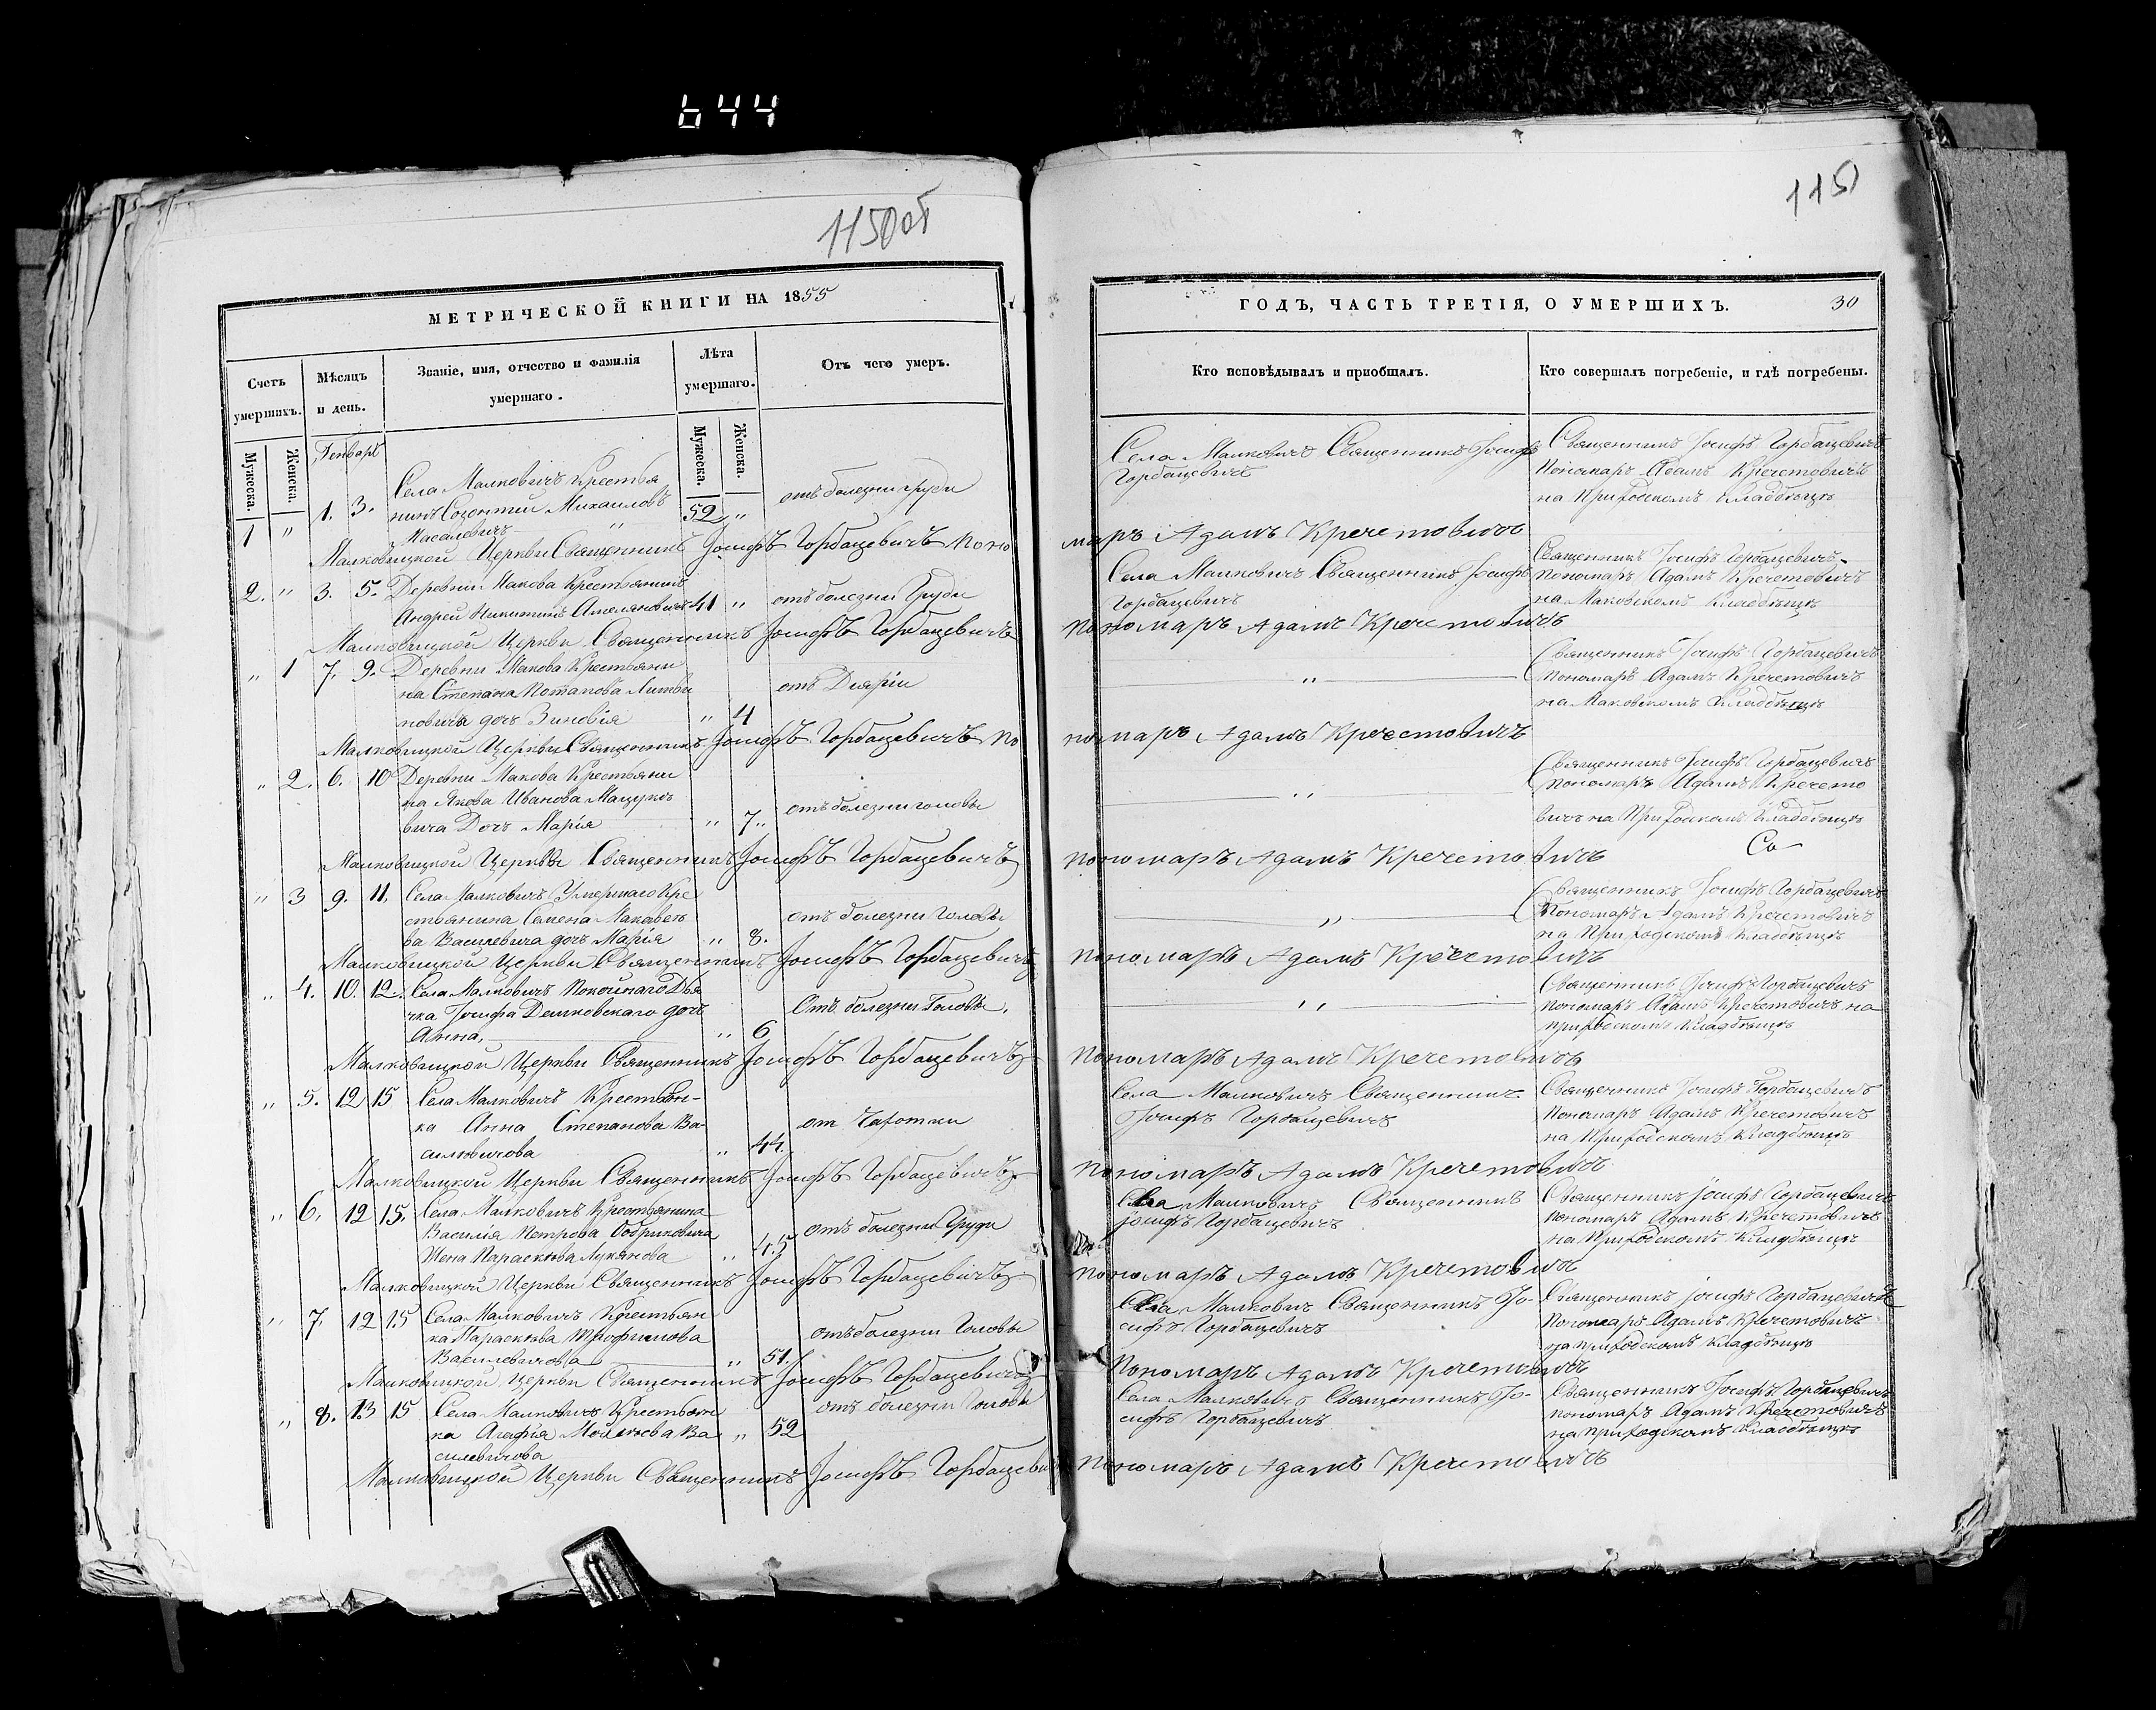 644
1150об
115
МЕТРИЧЕСКОЙ КНИГИ НА 1855
Счетъ умершихъ.
Мѣсяцъ и день.
Званіе, имя, отчество и фамилія умершаго.
Лѣта умершаго.
Отъ чего умеръ.
Мужеска.
Женска.
Генварь
Мужеска.
Женска.
1 " 1. 3. Села Малковичъ Крестья
нинъ Созонтій Михаиловъ 52 " отъ болезни груди
Масалевичъ
Малковицкой Церкви Священникъ Іосифъ Горбацевичъ Поно
2. " 3. 5. Деревни Макова Крестьянинъ
Андрей Никитинъ Амеляновичъ 41 " отъ болезни Груди
Малковицкой Церкви Священникъ Іосифъ Горбацевичъ
" 1 7. 9. Деревни Макова Крестьяни
на Степана Потапова Литви отъ Діяріи
новича дочъ Зиновія " 4
Малковицкой Церкви Священникъ Іосифъ Горбацевичъ По
" 2. 6. 10 Деревни Макова Крестьяни
на Якова Иванова Мацуке
вича Дочъ Марія " 7. отъ болезни головы
Малковицкой Церкви Священникъ Іосифъ Горбацевичъ
" 3 9. 11. Села Малковичъ Умершаго Кре
стьянина Семена Макавее отъ болезни Головы
ва Василевича дочъ Марія " 8.
Малковицкой Церкви Священникъ Іосифъ Горбацевичъ
" 4. 10. 12. Села Малковичъ Покойнаго Дья
чка Іосифа Демковскаго дочъ Отъ болезни Головы.
Анна, " 6
Малковицкой Церкви Священникъ Іосифъ Горбацевичъ
" 5. 12 15 Села Малковичъ Крестьян-
ка Анна Степанова Ва- от Чахотки
силювичова " 44
Малковицкой Церкви Священникъ Іосифъ Горбацевичъ
" 6. 12 15. Села Малковичъ Крестьянина
Василія Петрова Бобриковича отъ болезни Груди
Жена Параскева Лукянова " 45
Малковицкой Церкви Священникъ Іосифъ Горбацевичъ
" 7. 12 15 Села Малковичъ Крестьян
ка Параскева Трофимова отъ болезни Головы
Василевичова " 51.
Малковицкой Церкви Священникъ Іосифъ Горбацевичъ
" 8. 13 15 Села Малковичъ Крестьян отъ болезни Головы
ка Агафія Моисеева Ва " 52
силевичова
Малковицкой Церкви Священникъ Іосифъ Горбацевичъ
ГОДЪ, ЧАСТЬ ТРЕТІЯ, О УМЕРШИХЪ. 30
Кто исповѣдывалъ и приобщалъ.
Кто совершалъ погребеніе, и гдѣ погребены.
Села Малковичъ Священникъ Іосифъ
Горбацевичъ
Священникъ Іосифъ Горбацевичъ
Пономаръ Адамъ Кречетовичъ
на Приходскомъ Кладбѣще
маръ Адамъ Кречетовичъ
Села Малковичъ Священникъ Іосифъ
Горбацевичъ
Священникъ Іосифъ Горбацевичъ
Пономаръ Адамъ Кречетовичъ
на Маковскомъ Кладбѣще
Пономаръ Адамъ Кречетовичъ
"
Священникъ Іосифъ Горбацевичъ
Пономаръ Адамъ Кречетовичъ
на Маковскомъ Кладбѣще
номаръ Адамъ Кречетовичъ
"
Священникъ Іосифъ Горбацевичъ
Пономаръ Адамъ Кречето
вичъ на Приходскомъ Кладбѣще
Пономаръ Адамъ Кречетовичъ
Са
"
Священникъ Іосифъ Горбацевичъ
Пономаръ Адамъ Кречетовичъ
на Приходскомъ Кладбѣще
Пономаръ Адамъ Кречетовичъ
"
Священникъ Іосифъ Горбацевичъ
Пономаръ Адамъ Кречетовичъ на
приходскомъ Кладбѣще
Пономаръ Адамъ Кречетовичъ
Села Малковичъ Священникъ
Іосифъ Горбацевичъ
Священникъ Іосифъ Горбацевичъ
Пономаръ Адамъ Кречетовичъ
на Приходскомъ Кладбѣще
Пономаръ Адамъ Кречетовичъ
Села Малковичъ Священникъ
Іосифъ Горбацевичъ
Священникъ Іосифъ Горбацевичъ
Пономаръ Адамъ Кречетовичъ
на Приходскомъ Кладбѣще
Пономаръ Адамъ Кречетовичъ
Села Малкович Священникъ Іо-
сифъ Горбацевичъ
Священникъ Іосифъ Горбацевичъ
Пономаръ Адамъ Кречетовичъ
на приходскомъ Кладбѣще
Пономаръ Адамъ Кречетовичъ
Села Малковичъ Священникъ Іо-
сифъ Горбацевичъ
Священникъ Іосифъ Горбацевичъ
пономаръ Адамъ Кречетовичъ
на приходскомъ Кладбѣще
Пономаръ Адамъ Кречетовичъ